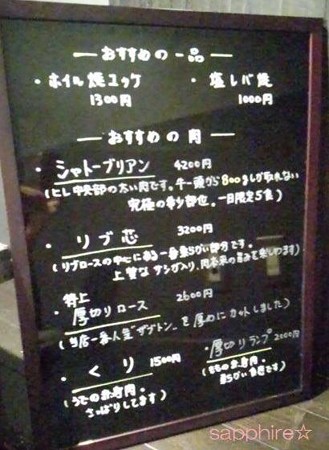 おすすめの一品
・ホイル焼ユッケ
1300円
・塩レバ焼
1000円
おすすめの肉
・シャトーブリアン 4200円
(ヒレ中央部の太い肉です。牛一頭から800gしか取れない
究極の希少部位。一日限定5食)
・リブ芯 3200円
(リブロースの中心にある一番柔らかい部分です。
上質なサシが入り、肉本来の旨みを楽しめます)
・特上
厚切りロース 2600円
(当店一番人気"ザブトン"を厚めにカットしました)
・くり 1500円
(うでの赤身肉。
さっぱりしてます)
・厚切りランプ 2000円
(ももの赤身肉。
柔らかい食感です)
sapphire☆